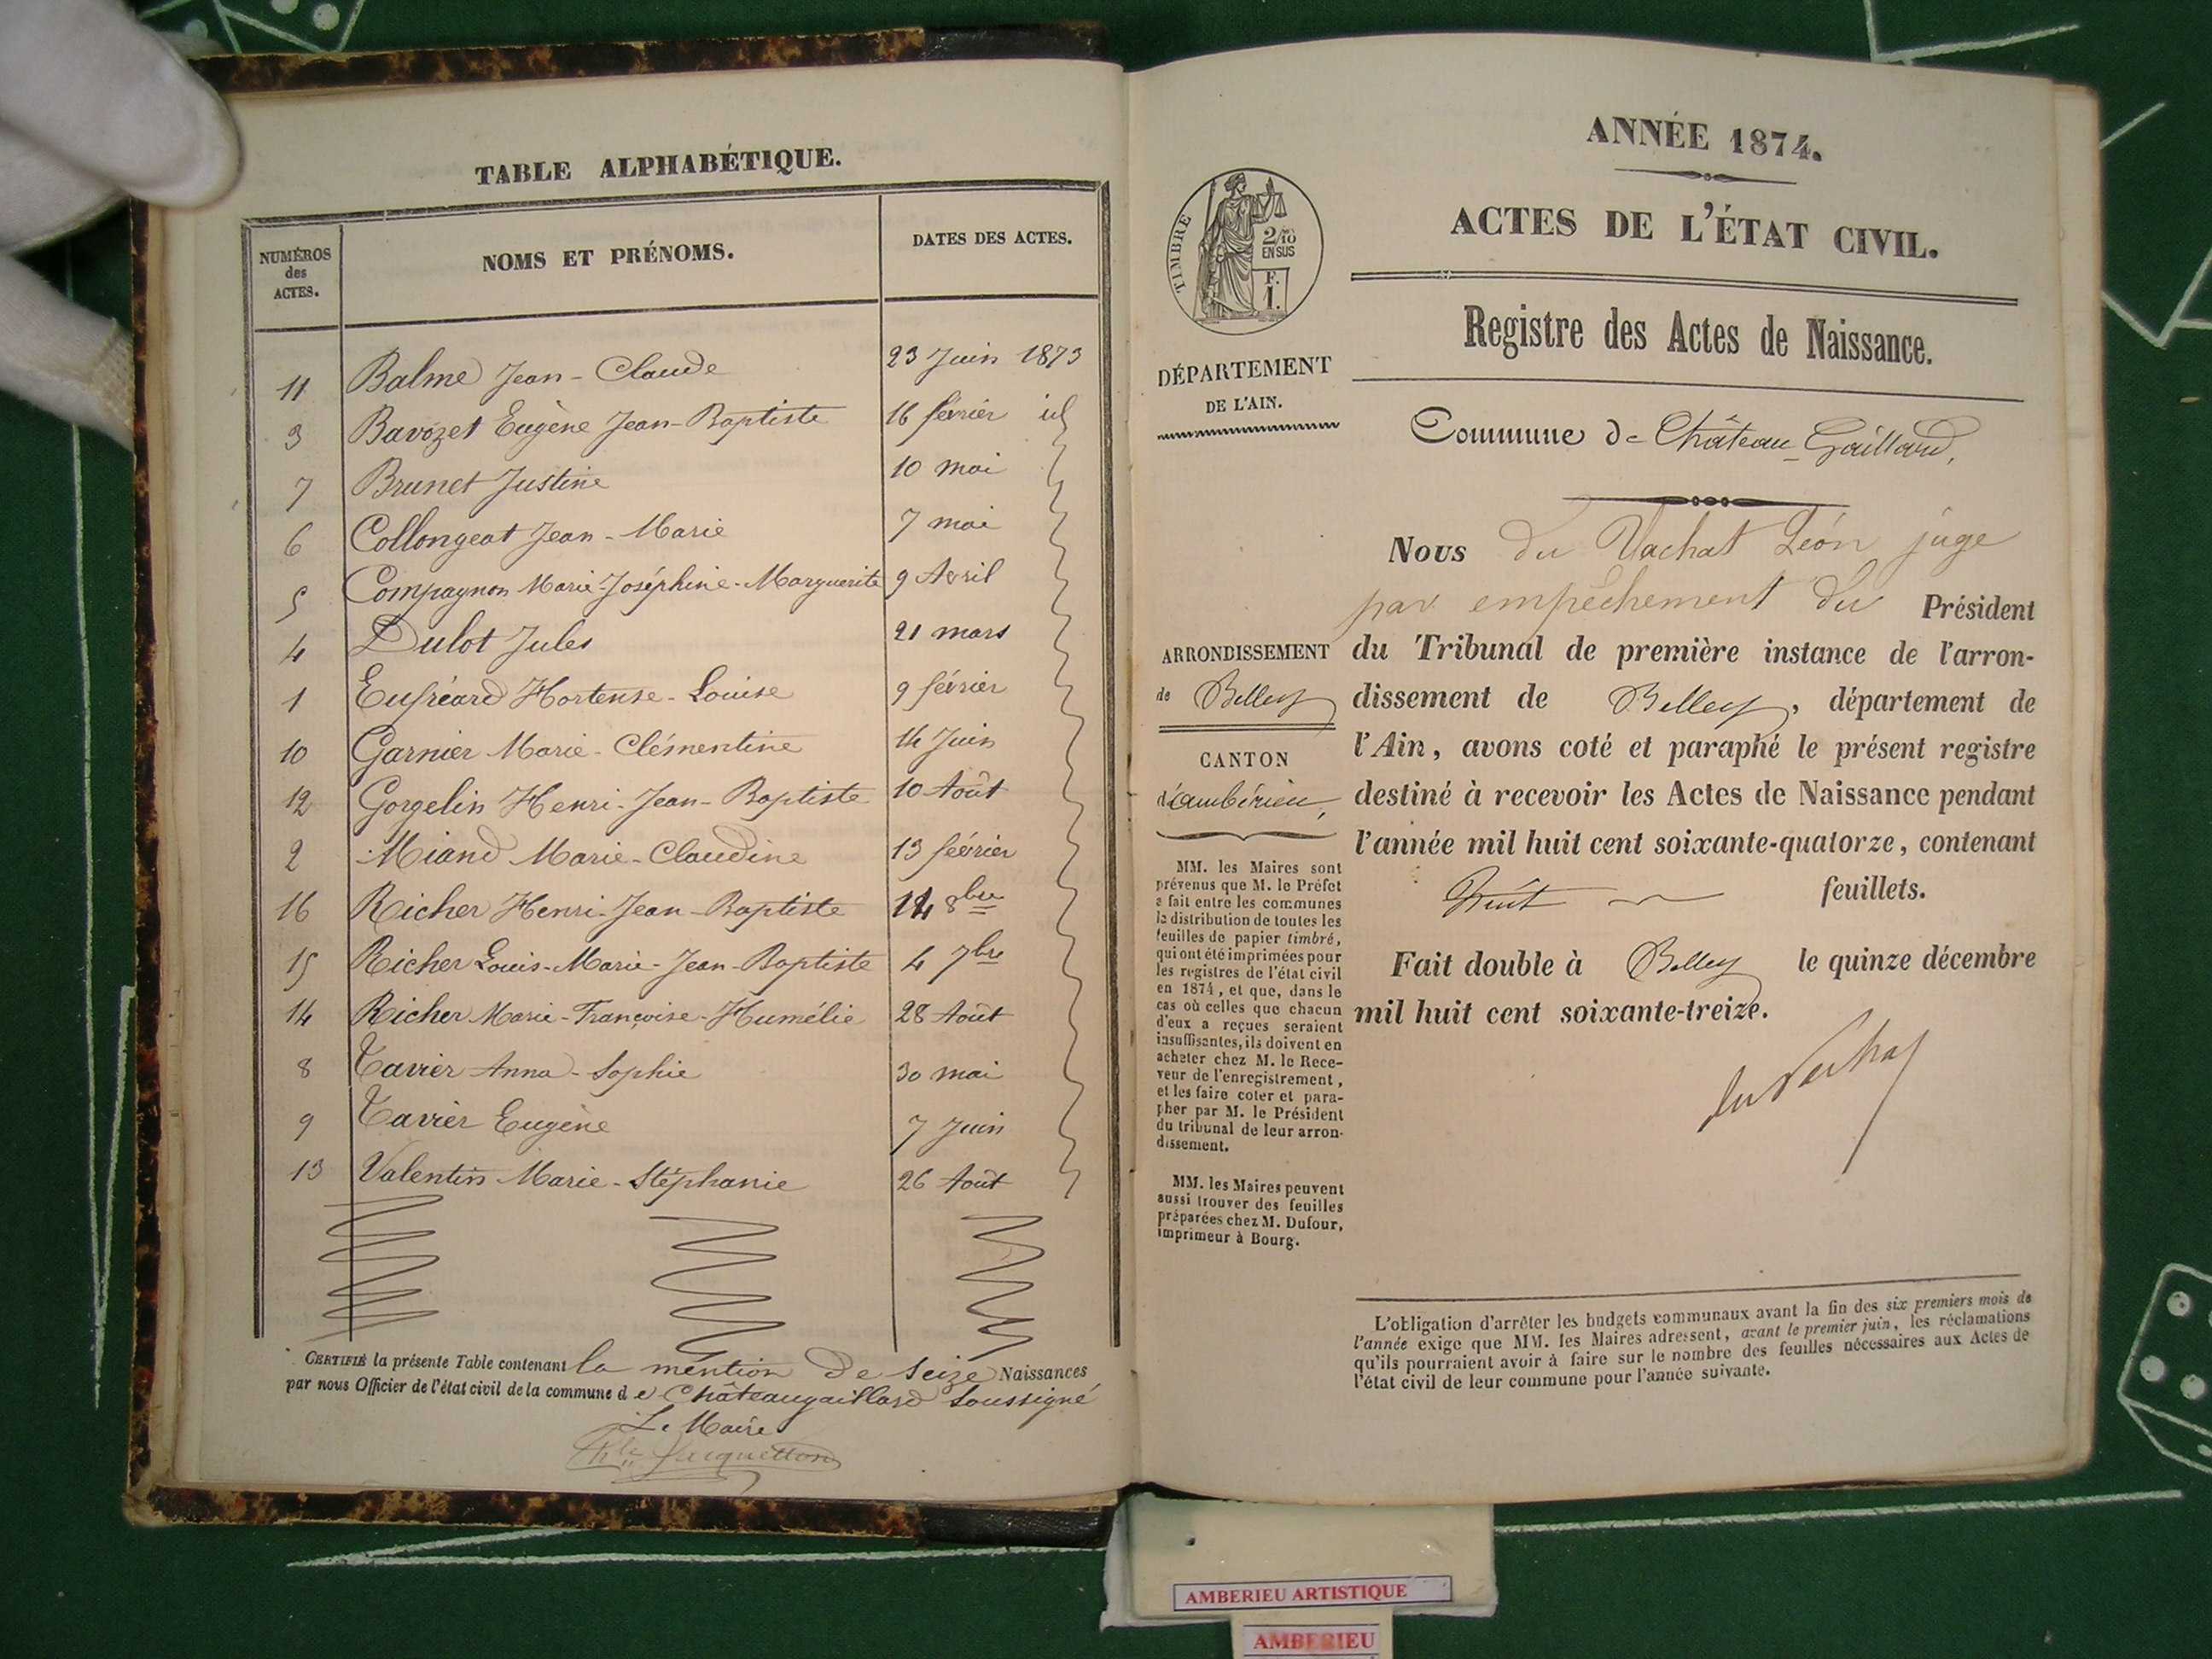 TABLE ALPHABÉTIQUE.
NUMÉROS des ACTES. NOMS ET PRÉNOMS. DATES DES ACTES.
11 Balme Jean-Claude 23 Juin 1873
3 Bavozet Eugène Jean-Baptiste 16 février id
7 Brunet Justine 10 mai
6 Collongeat Jean-Marie 7 mai
5 Compagnon Marie-Joséphine-Marguerite 9 Avril
4 Dulot Jules 21 mars
1 Eufréard Hortense-Louise 9 février
10 Garnier Marie-Clémentine 14 Juin
12 Gorgelin Henri-Jean-Baptiste 10 Août
2 Miand Marie-Claudine 13 février
16 Richer Henri-Jean-Baptiste 14 8bre
15 Richer Louis-Marie-Jean-Baptiste 4 7bre
14 Richer Marie-Françoise-Humélie 28 Août
8 Tavier Anna-Sophie 30 mai
9 Tavier Eugène 7 Juin
13 Valentin Marie-Stéphanie 26 Août
CERTIFIÉ la présente Table contenant la mention de seize Naissances
par nous Officier de l'état civil de la commune de Châteaugaillard soussigné
Le Maire
Jacquetton
ANNÉE 1874.
ACTES DE L'ÉTAT CIVIL.
Registre des Actes de Naissance.
TIMBRE
2/10
EN SUS
F.
1.
DÉPARTEMENT
DE L'AIN.
Commune de Château-Gaillard,
Nous du Vachat Léon juge
par empêchement du Président
du Tribunal de première instance de l'arron-
dissement de Belley, département de
l'Ain, avons coté et paraphé le présent registre
destiné à recevoir les Actes de Naissance pendant
l'année mil huit cent soixante-quatorze, contenant
huit feuillets.
Fait double à Belley le quinze décembre
mil huit cent soixante-treize.
du Vachat
ARRONDISSEMENT
de Belley
CANTON
d'ambérieu,
MM. les Maires sont
prévenus que M. le Préfet
a fait entre les communes
la distribution de toutes les
feuilles de papier timbré,
qui ont été imprimées pour
les registres de l'état civil
en 1874, et que, dans le
cas où celles que chacun
d'eux a reçues seraient
insuffisantes, ils doivent en
acheter chez M. le Rece-
veur de l'enregistrement,
et les faire coter et para-
pher par M. le Président
du tribunal de leur arron-
dissement.
MM. les Maires peuvent
aussi trouver des feuilles
préparées chez M. Dufour,
imprimeur à Bourg.
L'obligation d'arrêter les budgets communaux avant la fin des six premiers mois de
l'année exige que MM. les Maires adressent, avant le premier juin, les réclamations
qu'ils pourraient avoir à faire sur le nombre des feuilles nécessaires aux Actes de
l'état civil de leur commune pour l'année suivante.
AMBERIEU ARTISTIQUE
AMBERIEU